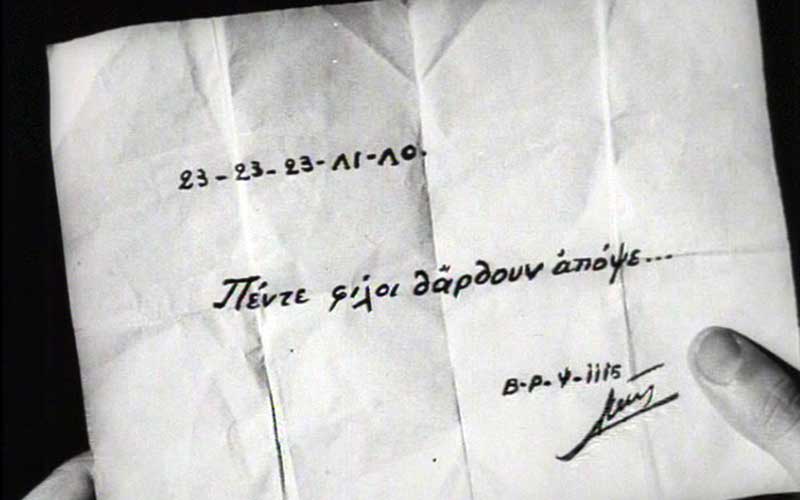 23-23-23-ΛΙ-ΛΟ.
Πέντε φίλοι θἄρθουν ἀπόψε...
Β-Ρ-Ψ-ΙΙΙ5